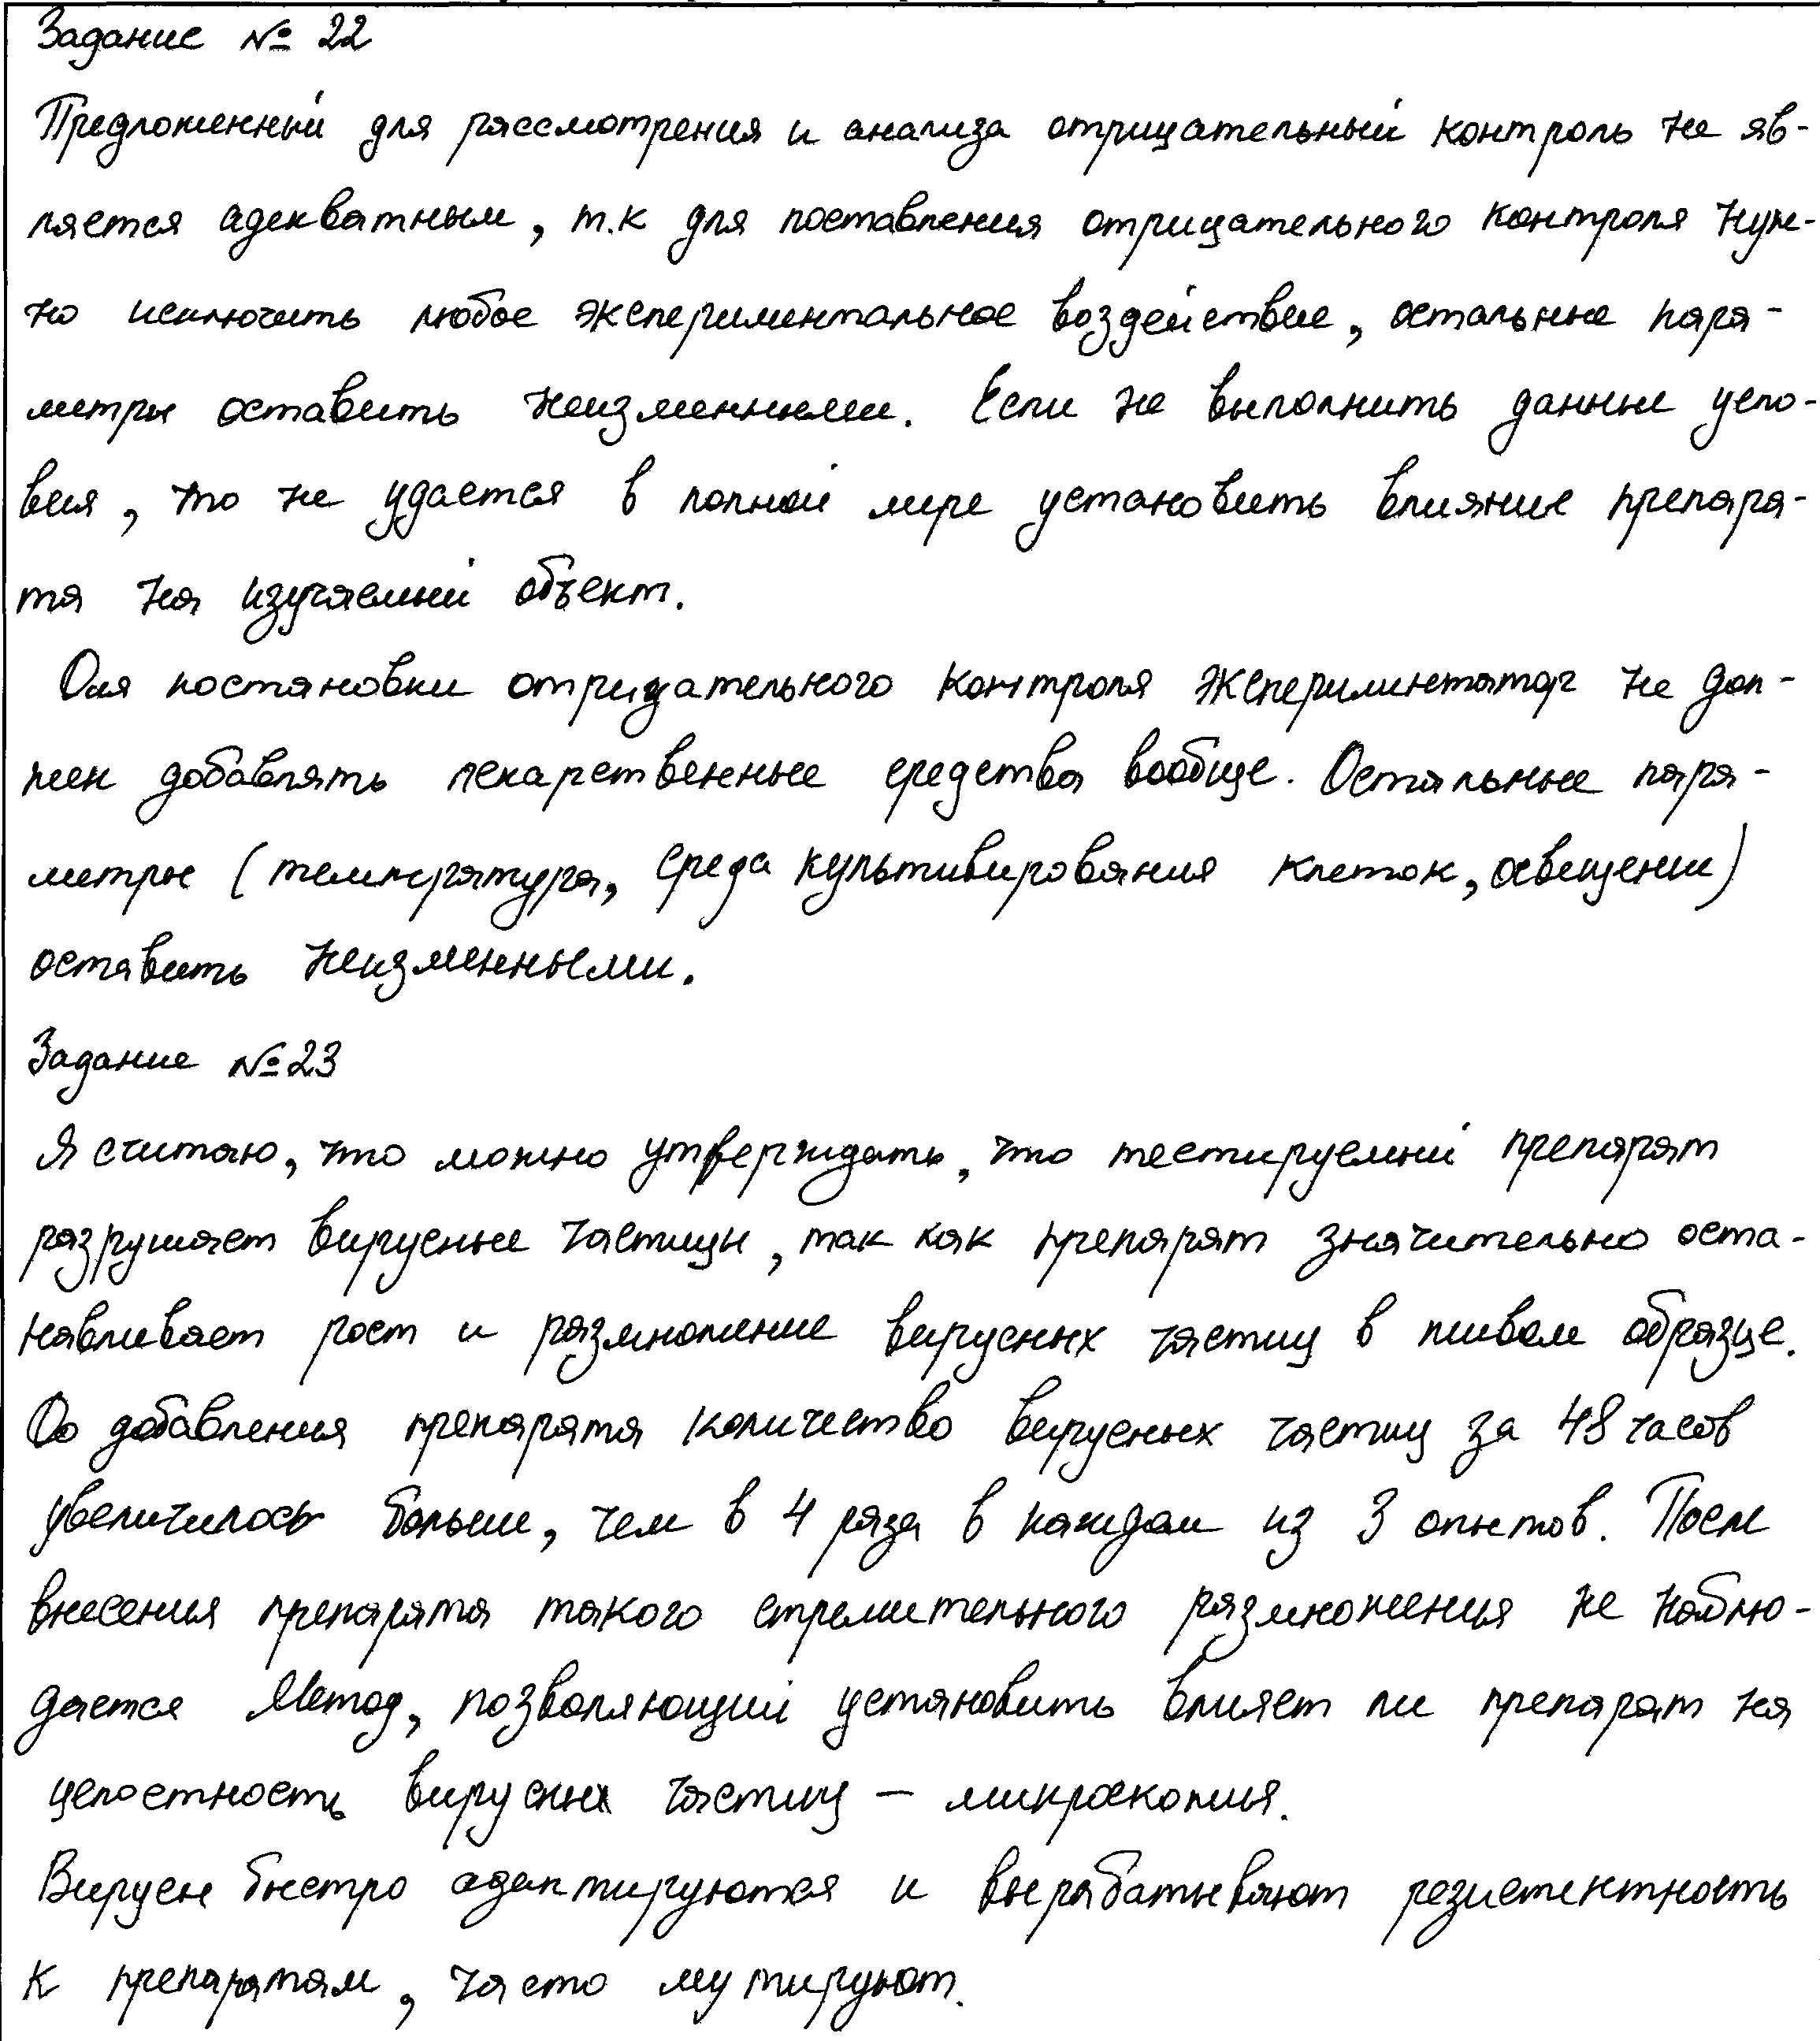 Задание № 22
Предложенный для рассмотрения и анализа отрицательный контроль не яв-
ляется адекватным, т.к для поставления отрицательного контроля нуж-
но исключить любое экспериментальное воздействие, остальные пара-
метры оставить неизменными. Если не выполнить данные усло-
вия, то не удается в полной мере установить влияние препара-
та на изучаемый объект.
Для постановки отрицательного контроля экспериментатор не дол-
жен добавлять лекарственные средства вообще. Остальные пара-
метры (температура, среда культивирования клеток, освещение)
оставить неизменными.
Задание №23
Я считаю, что можно утверждать, что тестируемый препарат
разрушает вирусные частицы, так как препарат значительно оста-
навливает рост и размножение вирусных частиц в живом образце.
До добавления препарата количество вирусных частиц за 48 часов
увеличилось больше, чем в 4 раза в каждом из 3 опытов. После
внесения препарата такого стремительного размножения не наблю-
дается Метод, позволяющий установить влияет ли препарат на
целостность вирусных частиц – микроскопия.
Вирусы быстро адаптируются и вырабатывают резистентность
к препаратам, часто мутируют.